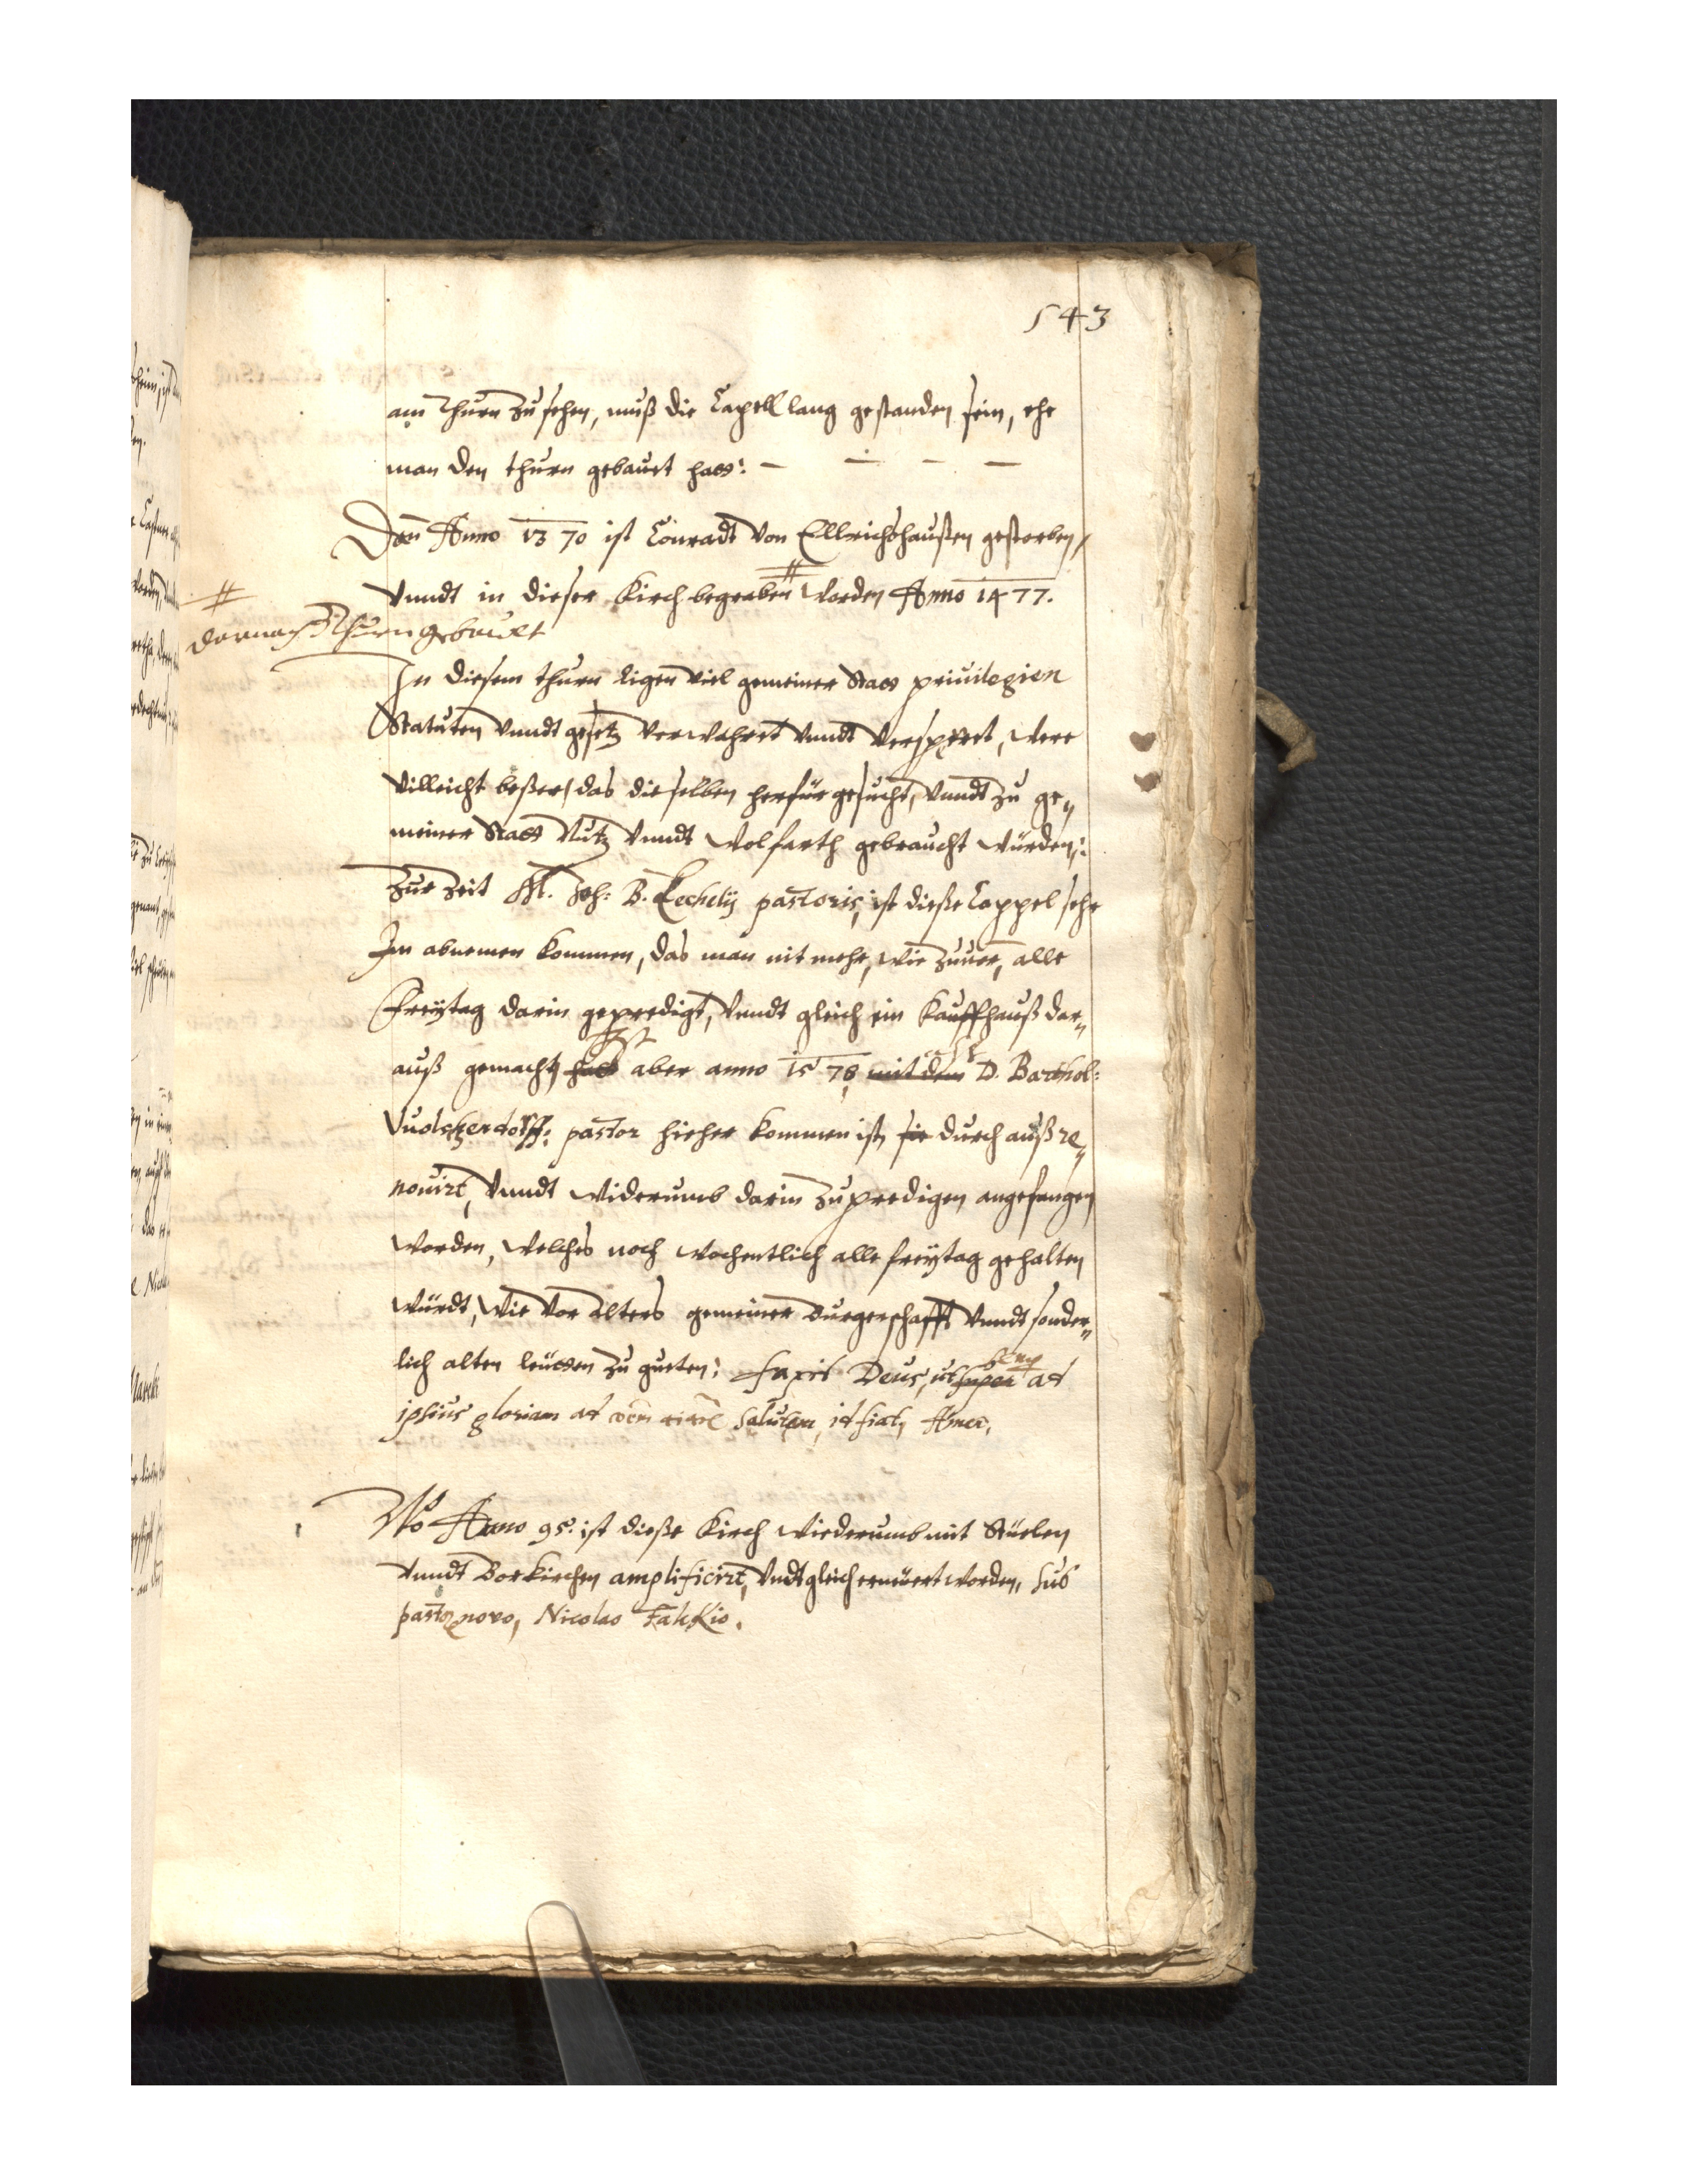 543
am Thurn zu sehen, muß die Capell lang gestanden sein, ehe
man den thurn gebauet hatt: — — — —
Den Anno 1370 ist Conradt von Ellrichshaußen gestorben,
vnndt in dieser Kirch begraben # worden Anno 1477.
#
darnach Thurn gebauet
In diesem thurn ligen viel gemeiner Statt priuilegien
Statuten vnndt gesetz verwahret vnndt versperret, were
villeicht beßer, das dieselben herfür gesucht, vnndt zu ge„
meiner Statt Nutz vnndt Wolfarth gebraucht würden:
Zur Zeit M. Joh: B. Lechelij pastoris, ist dieße Cappel sehr
In abnemen kommen, das man nit mehr, wie zuuor, alle
Freÿtag darin geprediget, vnndt gleich ein Kauffhauß dar„
auß gemacht, hatt Ist aber anno 1578 mit dem D. Barthol:
Wolschendorff: pastor hieher kommen ist, sie durch auß re„
nouirt, vnndt widerumb darin zu predigen angefangen
worden, welches noch wochentlich alle freÿtag gehalten
würdt, wie vor alters gemeiner Burgerschafft vnndt sonder„
lich alten leütten zu gueten: faxit Deus, ut super semp ad
ipsius gloriam ad salutem, id fiat, Amen.
Ao Anno 95. ist dieße Kirch wiederumb mit Stüelen
vnndt Borkirchen amplificirt, vndt gleich erneüert worden, sub
pastore novo, Nicolao Falckio.